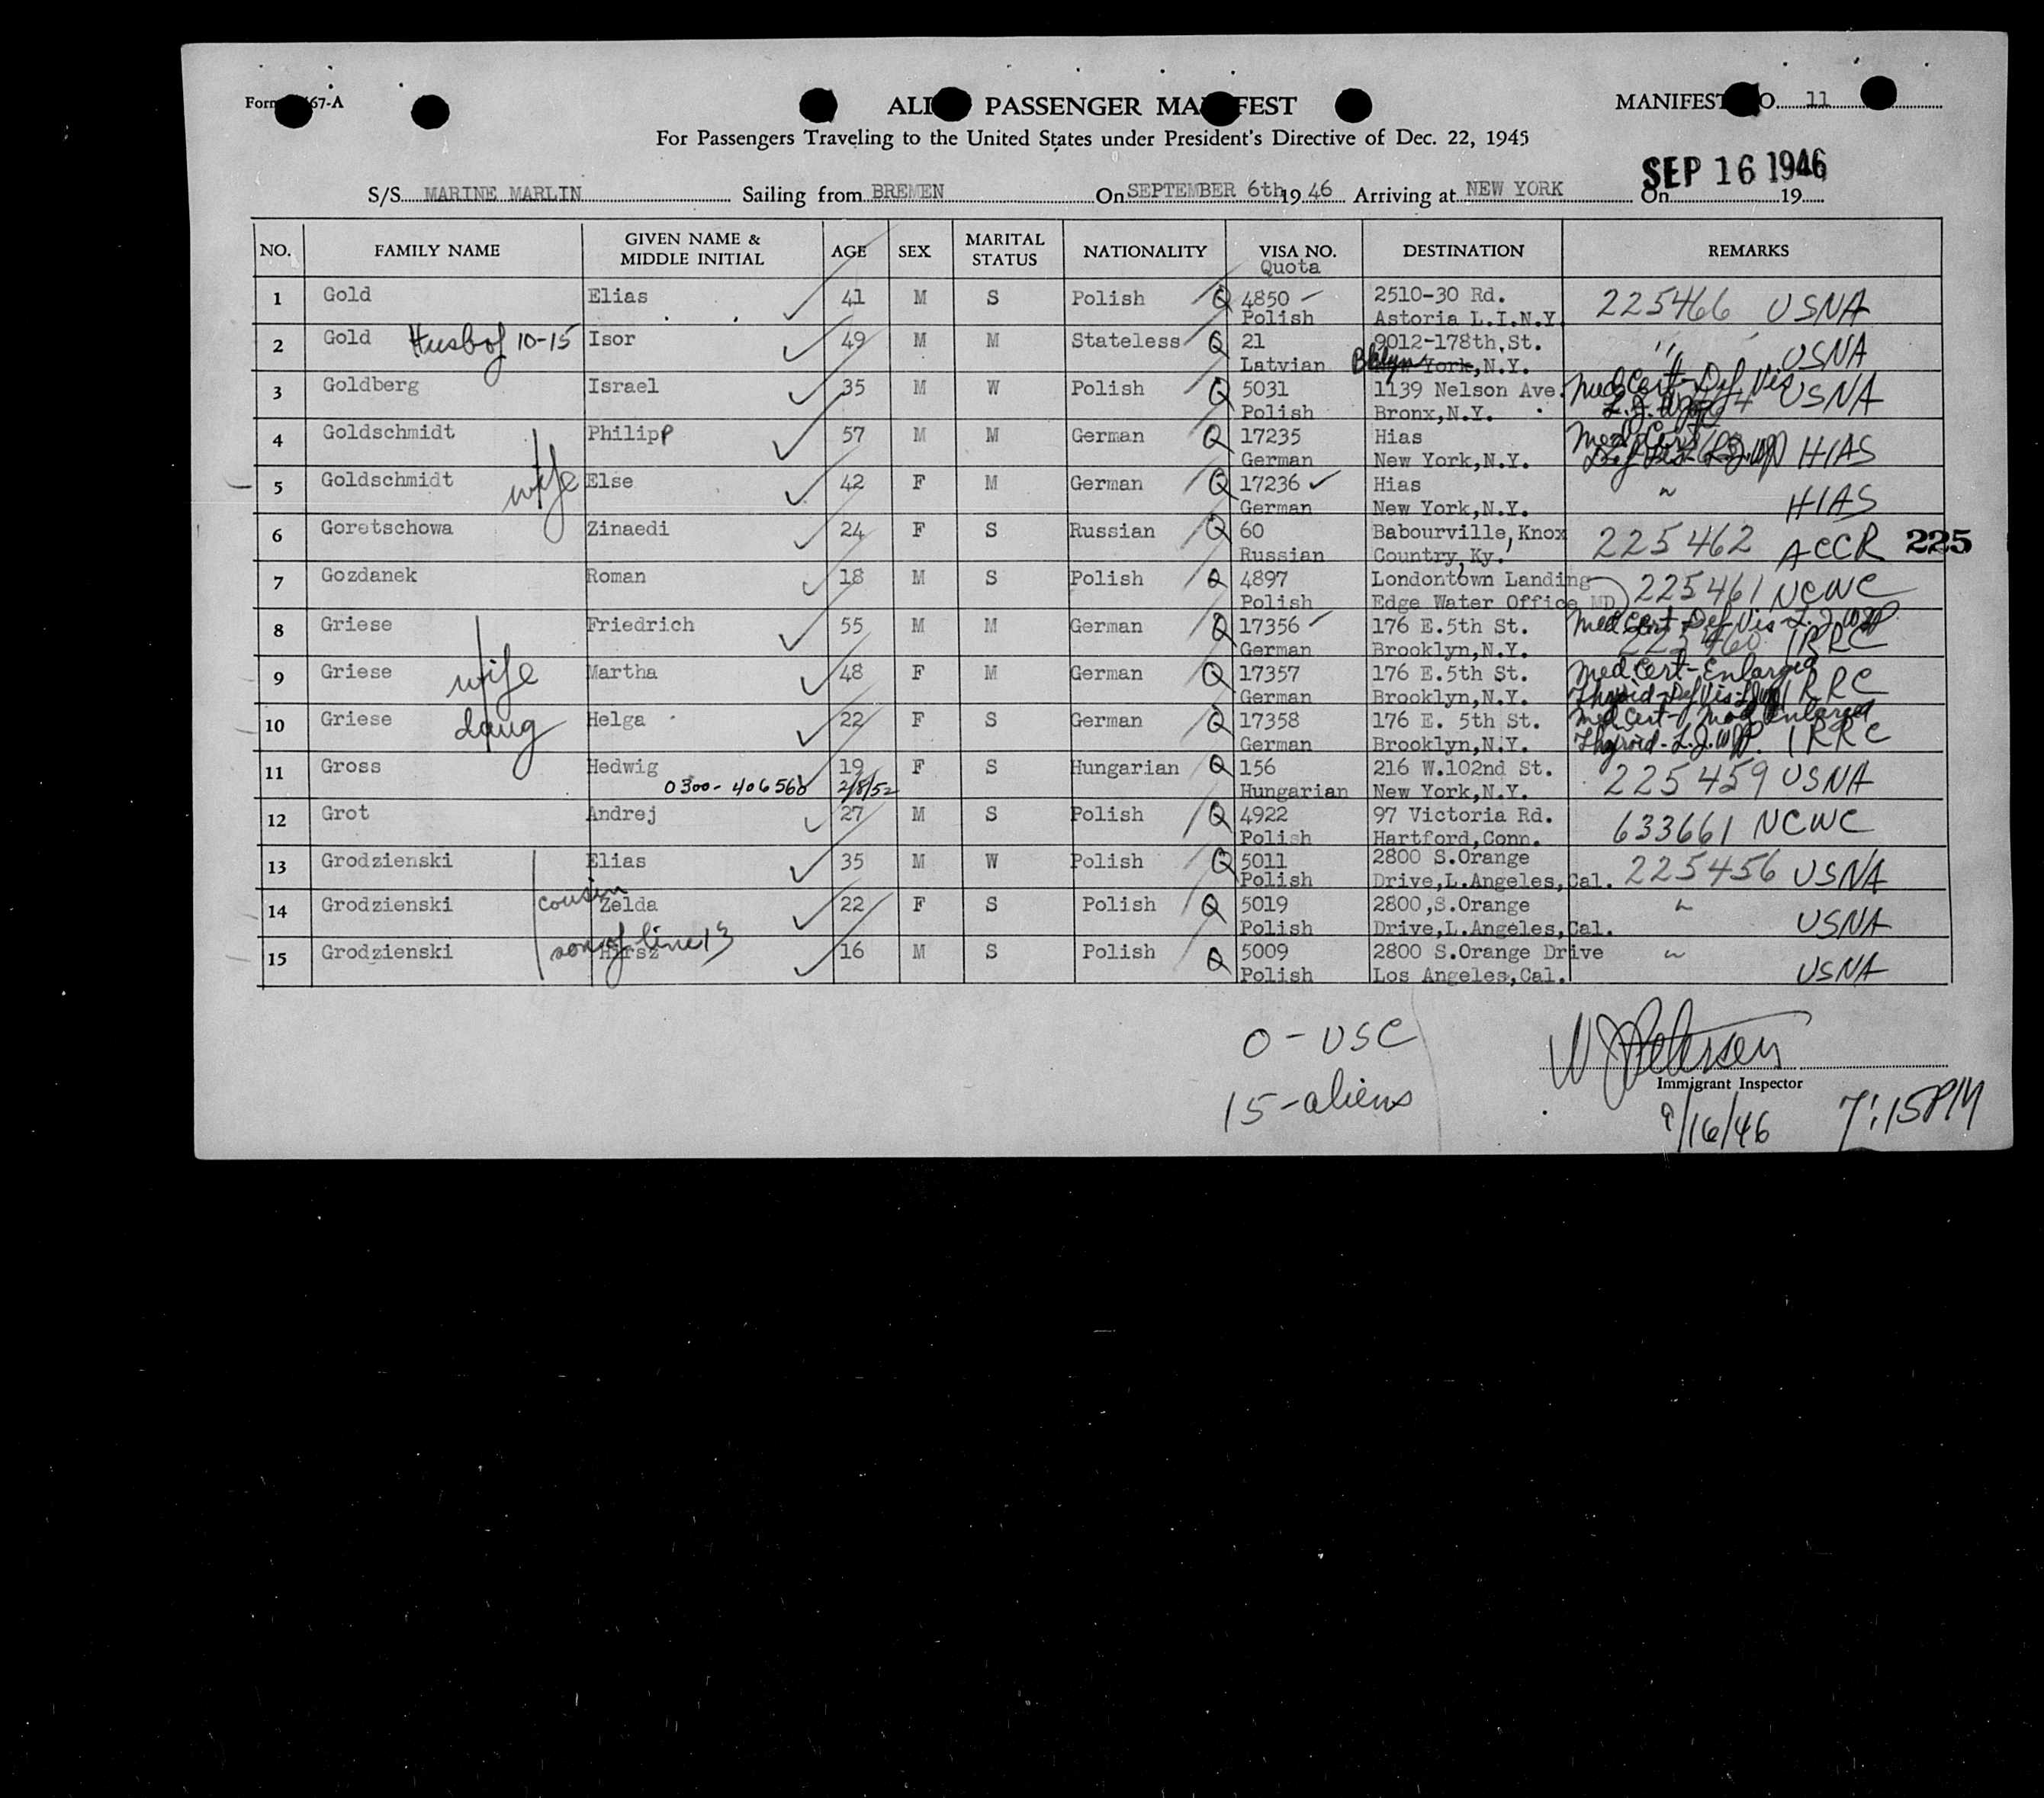 ALI PASSENGER MA FEST
MANIFEST O. 11
For Passengers Traveling to the United States under President's Directive of Dec. 22, 1945
SEP 16 1946
S/S MARINE MARLIN Sailing from BREMEN On SEPTEMBER 6th 19 46 Arriving at NEW YORK On 19
NO. FAMILY NAME GIVEN NAME & MIDDLE INITIAL AGE SEX MARITAL STATUS NATIONALITY VISA NO. Quota DESTINATION REMARKS
1 Gold Elias 41 M S Polish Q 4850 2510-30 Rd. 225466 USNA
Polish Astoria L.I.N.Y.
2 Gold Husb of 10-15 Isor 49 M M Stateless Q 21 9012-178th.St. " USNA
Latvian Bklyn York,N.Y.
3 Goldberg Israel 35 M W Polish Q 5031 1139 Nelson Ave. Med Cert-Def Vis USNA
Polish Bronx,N.Y.
4 Goldschmidt Philipp 57 M M German Q 17235 Hias Med Cert HIAS
German New York,N.Y. Def Vis
5 Goldschmidt wife Else 42 F M German Q 17236 Hias " HIAS
German New York,N.Y.
6 Goretschowa Zinaedi 24 F S Russian Q 60 Babourville,Knox 225462 ACCR 225
Russian Country,Ky.
7 Gozdanek Roman 18 M S Polish Q 4897 Londontown Landing 225461 NCWC
Polish Edge Water Office MD
8 Griese Friedrich 55 M M German Q 17356 176 E.5th St. Med Cert-Def Vis
German Brooklyn,N.Y. 225460 IRRC
9 Griese wife Martha 48 F M German Q 17357 176 E.5th St. Med Cert-Enlarged
German Brooklyn,N.Y. Thyroid-Def Vis IRRC
10 Griese daug Helga 22 F S German Q 17358 176 E. 5th St. Med Cert- Mod Enlarged
German Brooklyn,N.Y. Thyroid- IRRC
11 Gross Hedwig 19 F S Hungarian Q 156 216 W.102nd St. 225459 USNA
0300-406568 2/8/52 Hungarian New York,N.Y.
12 Grot Andrej 27 M S Polish Q 4922 97 Victoria Rd. 633661 NCWC
Polish Hartford,Conn.
13 Grodzienski Elias 35 M W Polish Q 5011 2800 S.Orange 225456 USNA
Polish Drive,L.Angeles,Cal.
14 Grodzienski cousin Zelda 22 F S Polish Q 5019 2800,S.Orange " USNA
Polish Drive,L.Angeles,Cal.
15 Grodzienski son of line 13 Hirsz 16 M S Polish Q 5009 2800 S.Orange Drive " USNA
Polish Los Angeles,Cal.
0-USC
15-aliens
W J Petersen
Immigrant Inspector
9/16/46 7:15PM